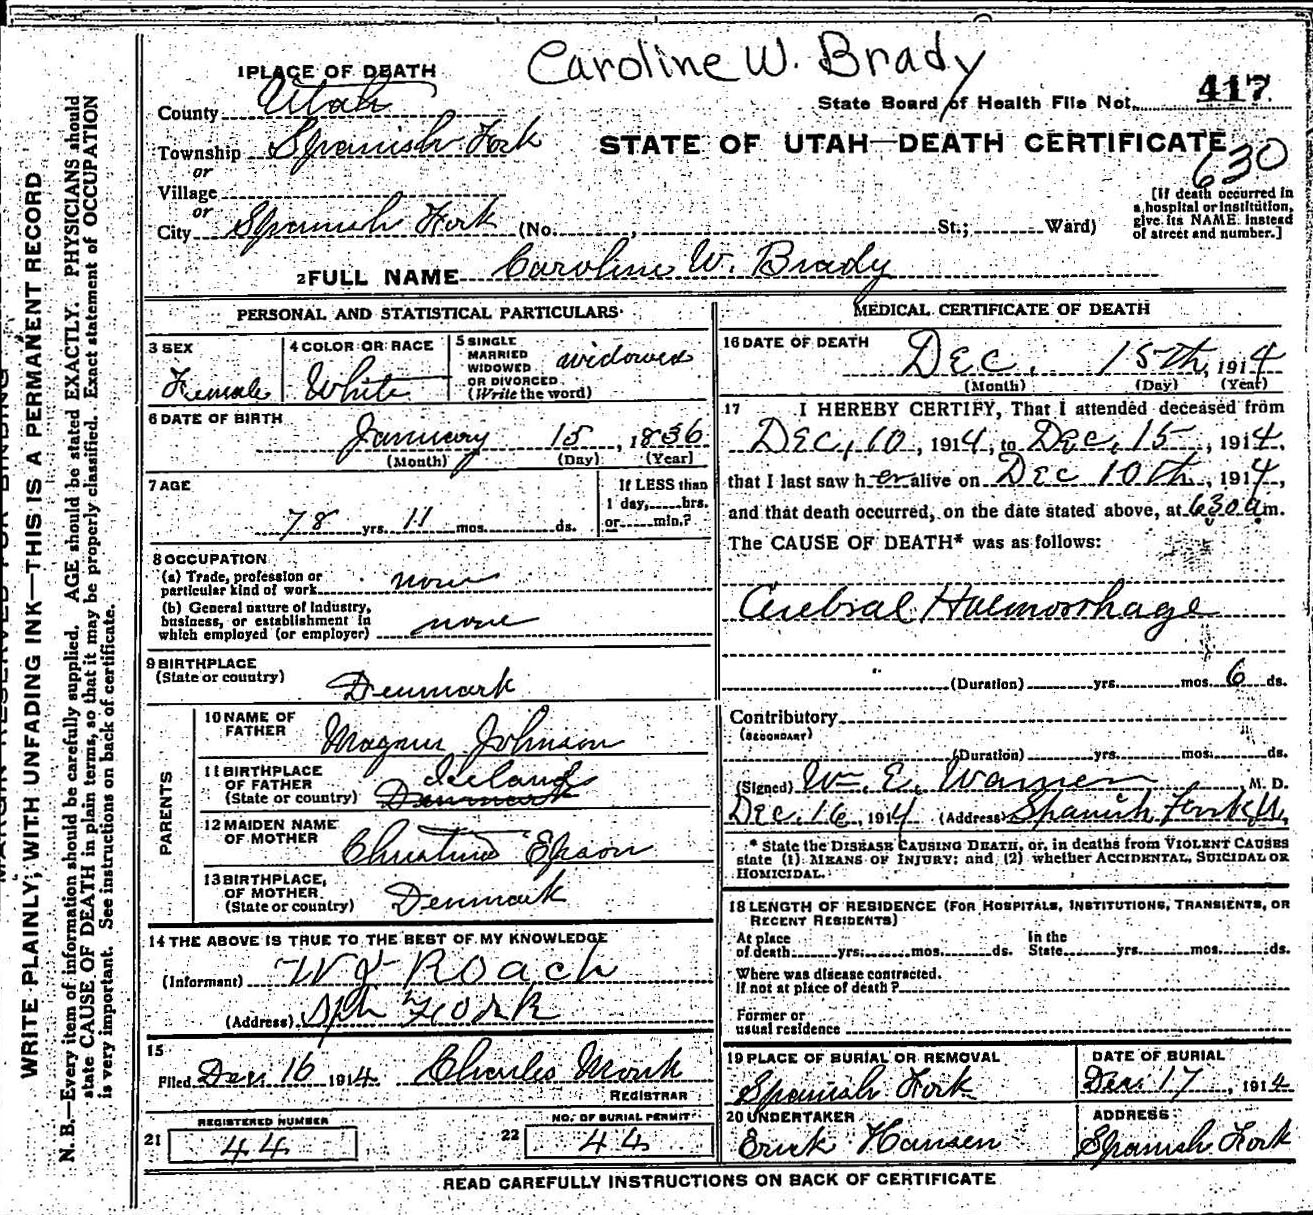 Caroline W. Brady
1 PLACE OF DEATH
County Utah
State Board of Health File No. 417
Township Spanish Fork
STATE OF UTAH—DEATH CERTIFICATE
630
or
Village
or
City Spanish Fork (No. , St.; Ward)
[If death occurred in
a hospital or institution,
give its NAME instead
of street and number.]
2 FULL NAME Caroline W. Brady
PERSONAL AND STATISTICAL PARTICULARS
3 SEX
Female
4 COLOR OR RACE
White
5 SINGLE
MARRIED
WIDOWED
OR DIVORCED
(Write the word)
widowed
6 DATE OF BIRTH
January 15, 1836
(Month) (Day) (Year)
7 AGE
78 yrs. 11 mos. ds.
If LESS than
1 day, hrs.
or min.?
8 OCCUPATION
(a) Trade, profession or
particular kind of work none
(b) General nature of Industry,
business, or establishment in
which employed (or employer) none
9 BIRTHPLACE
(State or country) Denmark
PARENTS
10 NAME OF
FATHER Magnus Johnson
11 BIRTHPLACE
OF FATHER Iceland
(State or country) Denmark
12 MAIDEN NAME
OF MOTHER Christina
13 BIRTHPLACE,
OF MOTHER
(State or country) Denmark
14 THE ABOVE IS TRUE TO THE BEST OF MY KNOWLEDGE
(Informant) Roach
(Address) Sph Fork
15
Filed Dec 16 1914 Charles Monk
REGISTRAR
REGISTERED NUMBER
21 44
NO. OF BURIAL PERMIT
22 44
MEDICAL CERTIFICATE OF DEATH
16 DATE OF DEATH
Dec. 15th, 1914
(Month) (Day) (Year)
17 I HEREBY CERTIFY, That I attended deceased from
Dec, 10, 1914, to Dec, 15, 1914,
that I last saw her alive on Dec 10th, 1914,
and that death occurred, on the date stated above, at 630 am.
The CAUSE OF DEATH* was as follows:
Cerebral Haemorrhage
(Duration) yrs. mos. 6 ds.
Contributory
(SECONDARY)
(Duration) yrs. mos. ds.
(Signed) Wm. E. Warner M. D.
Dec. 16, 1914 (Address) Spanish Fork U,
* State the DISEASE CAUSING DEATH, or, in deaths from VIOLENT CAUSES
state (1) MEANS OF INJURY; and (2) whether ACCIDENTAL, SUICIDAL OR
HOMICIDAL.
18 LENGTH OF RESIDENCE (FOR HOSPITALS, INSTITUTIONS, TRANSIENTS, OR
RECENT RESIDENTS)
At place
of death yrs. mos. ds.
In the
State yrs. mos. ds.
Where was disease contracted.
If not at place of death?
Former or
usual residence
19 PLACE OF BURIAL OR REMOVAL
Spanish Fork
DATE OF BURIAL
Dec 17, 1914
20 UNDERTAKER
Erick Hansen
ADDRESS
Spanish Fork
READ CAREFULLY INSTRUCTIONS ON BACK OF CERTIFICATE
MARGIN RESERVED FOR BINDING
WRITE PLAINLY, WITH UNFADING INK—THIS IS A PERMANENT RECORD
N. B.—Every item of information should be carefully supplied. AGE should be stated EXACTLY. PHYSICIANS should
state CAUSE OF DEATH in plain terms, so that it may be properly classified. Exact statement of OCCUPATION
is very important. See instructions on back of certificate.